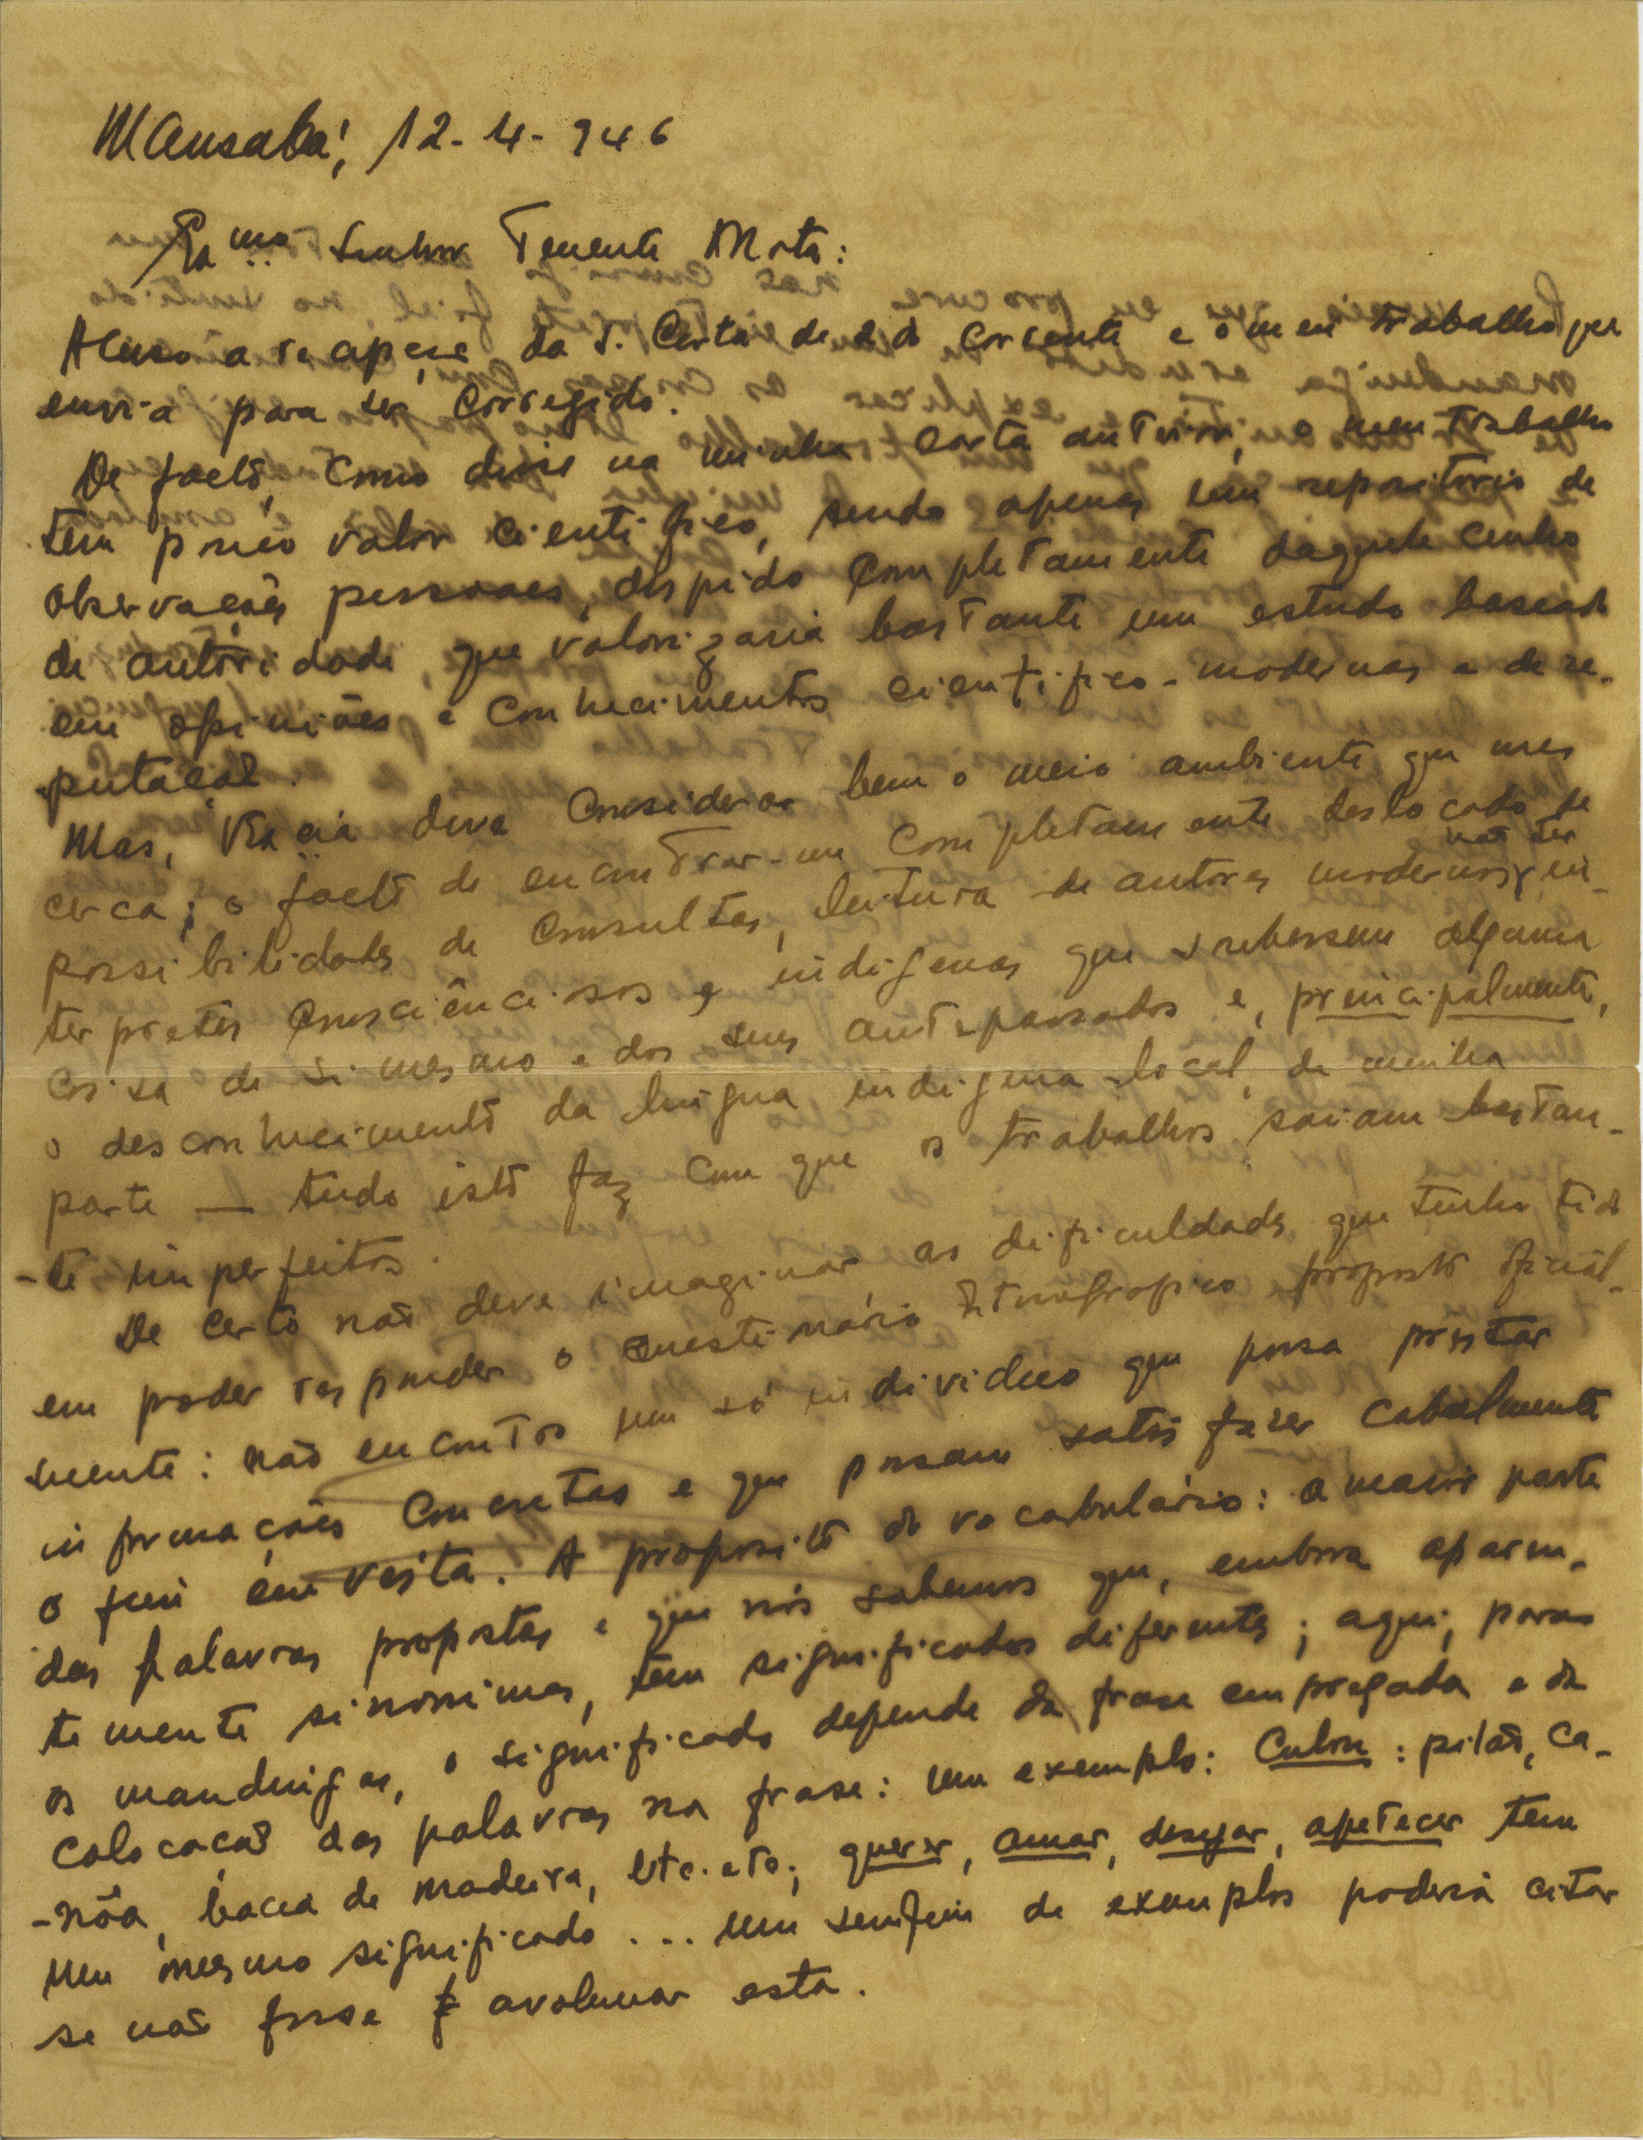 Mansabá, 12-4-946
Exmo Senhor Tenente Mota:
Acuso a recepçe da S. Carta de 2 do corrente e o meu trabalho que
envia para ser corregido.
De facto, como disse na minha carta anterior, o meu trabalho
tem pouco valor cientifico, sendo apenas um repositorio de
observações pessoaes, despido completamente daquele cunho
de autoridade, que valorizaria bastante um estudo baseado
em opiniões e conhecimentos cientifico-modernas e de re-
putação.
Mas, Vxa cia deve considerar bem o meio ambiente que nos
cerca; o facto de encontrar-me completamente deslocado de
possibilidades de consultas, leitura de autores modernos, não ter in-
terpretes consciênciosos e indigenas que soubessem alguma
coisa de si mesmo e dos seus antepassados e, principalmente,
o desconhecimento da lingua indigena local, de minha
parte — tudo isto faz com que os trabalhos saiam bastan-
-te imperfeitos.
De certo não deve imaginar as dificuldades que tenho tido
em poder responder o questionário Etnografico proposto oficial-
mente: não encontro um só individuo que possa prestar
informações concretas e que possam satisfazer cabalmente
o fim em vista. A proposito do vocabulário: a maior parte
das palavras propostas e que nós sabemos que, embora aparen-
temente sinonimas, tem significados diferentes; aqui, para
os mandingas, o significado depende da frase empregada e da
colocação das palavras na frase: um exemplo: Culon: pilão, ca-
-nôa, bacia de madeira, etc. etc; querer, amar, desejar, apetecer tem
um mesmo significado ... um semfim de exemplos poderia citar
se não fosse avolumar esta.